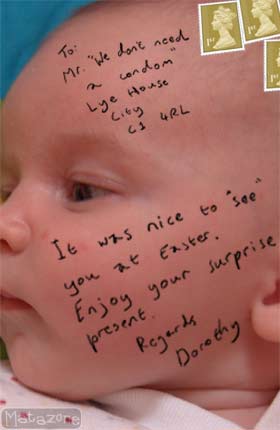 To:
Mr. "We don't need
a condom"
Lye House
City
C1 4RL
1st
1st
1st
It was nice to "see"
you at Easter.
Enjoy your surprise
present.
Regards
Dorothy
Matazone